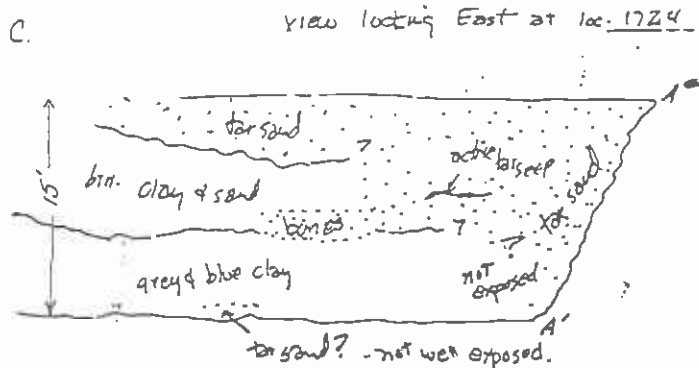 C.
view looking East at loc. 1724
A
tar sand
?
active tar seep
15'
brn. clay & sand
tar sand
bones
?
?
not exposed
grey & blue clay
A'
tar sand? - not well exposed.